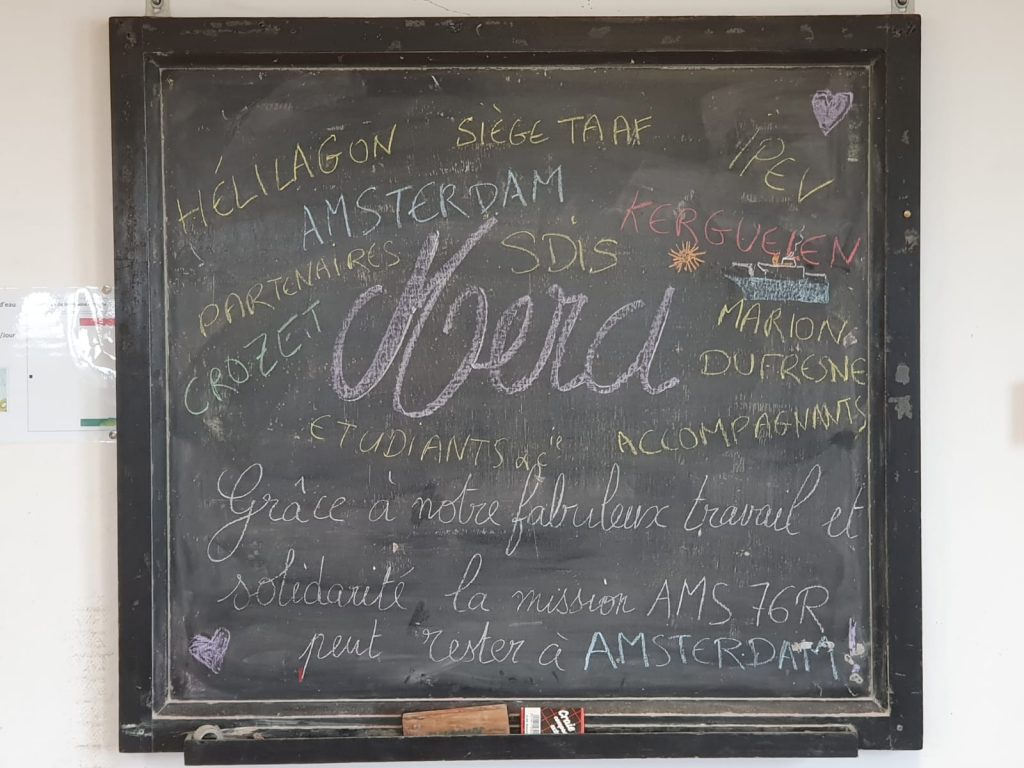 HÉLILAGON
SIÈGE TAAF
IPEV
AMSTERDAM
KERGUELEN
PARTENAIRES
SDIS
CROZET
Merci
MARION
DUFRESNE
ETUDIANTS
ACCOMPAGNANTS
Grâce à notre fabuleux travail et
solidarité la mission AMS 76R
peut rester à AMSTERDAM!
d'eau
/Jour
Craie